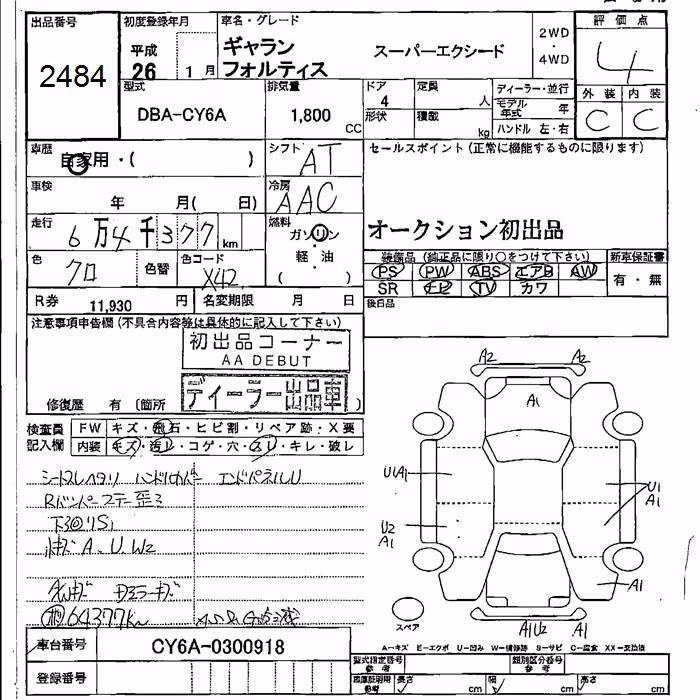 出品番号
2484
初度登録年月
平成
26 1 月
車名・グレード
ギャラン
フォルティス
スーパーエクシード
2WD
・
4WD
評価点
4
外装 内装
C C
型式
DBA-CY6A
排気量
1,800
CC
ドア
4
形状
定員
人
積載
kg
ディーラー・並行
モデル
年式 年
ハンドル 左・右
車歴
自家用・( )
シフト
AT
セールスポイント(正常に機能するものに限ります)
オークション初出品
車検
年 月( 日)
冷房
AAC
走行
6万4千377km
燃料
ガソリン
・
軽・油
( )
色
クロ
色替
色コード
X42
装備品 (純正品に限り○をつけて下さい)
PS PW ABS エアB AW
SR ナビ TV カワ
新車保証書
有・無
R券 11,930 円
名変期限 月 日
後日品
注意事項申告欄(不具合内容等は具体的に記入して下さい)
初出品コーナー
AA DEBUT
ディーラー出品車
修復歴 有 (箇所 )
検査員
記入欄
FW キズ・飛石・ヒビ割・リペア跡・X要
内装 キズ・汚レ・コゲ・穴・スレ・キレ・破レ
シートスレヘタリ
エンドパネルU
下回りS1
小キズA、U、W2
64377km
A2 A2
A1
U1A1
U1
A1
U2
A1
A1
A1U2 A1
スペア
A-キズ E-エクボ U-凹み W-補修跡 S-サビ C-腐食 XX-交換済
車台番号 CY6A-0300918
登録番号
型式指定番号
参考
類別区分番号
参考
車庫証明用
参考
長さ cm
幅 cm
高さ cm